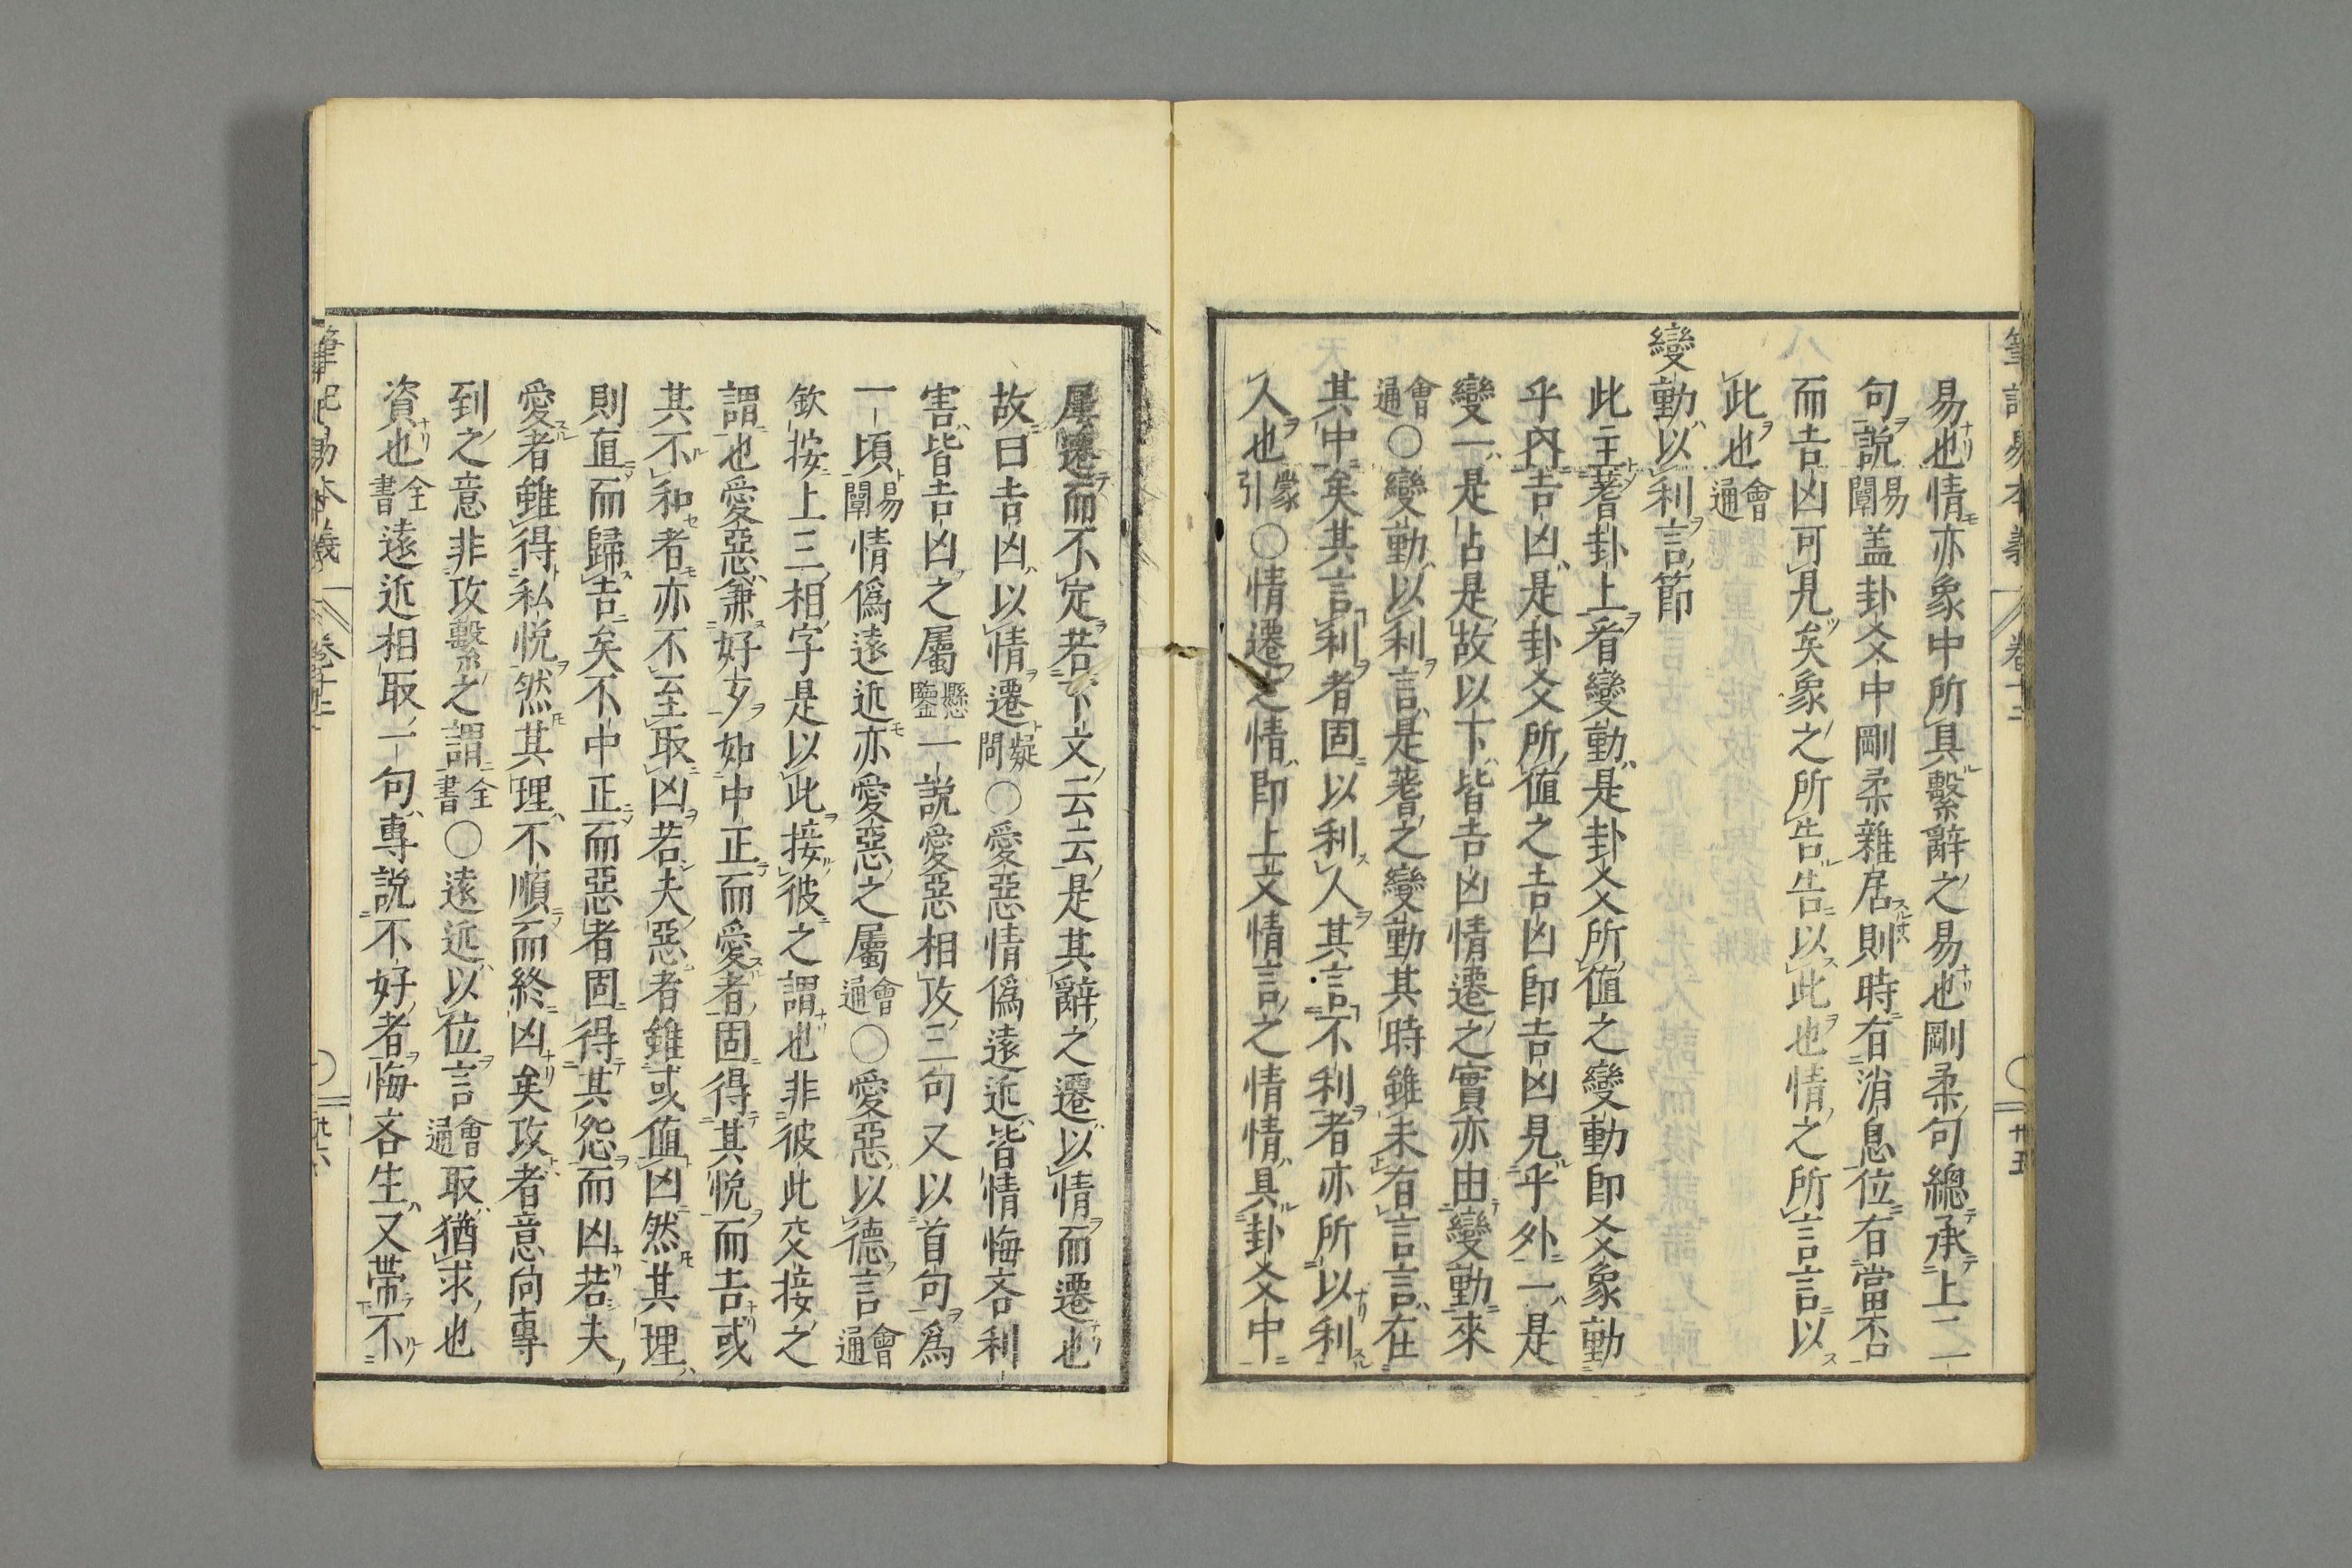 易也情亦象中所具繫辭之易也剛柔句總承上二
句說易闡盖卦爻中剛柔雜居則時有消息位有當否
而吉凶可見矣象之所告告以此也情之所言言以
此也會通
變動以利言節
此主蓍卦上看變動是卦爻所値之變動卽爻象動
乎內吉凶是卦爻所値之吉凶卽吉凶見乎外一是
變一是占是故以下皆吉凶情遷之實亦由變動來
會通○變動以利言是蓍之變動其時雖未有言言在
其中矣其言利者固以利人其言不利者亦所以利
人也蒙引○情遷之情卽上文情言之情情具卦爻中
屢遷而不定若下文云云是其辭之遷以情而遷也
故曰吉凶以情遷疑問○愛惡情僞遠近皆情悔吝利
害皆吉凶之屬懸鑒一說愛惡相攻三句又以首句爲
一頃易闡情僞遠近亦愛惡之屬會通○愛惡以德言會通
欽按上三相字是以此接彼之謂也非彼此交接之
謂也愛惡兼好歹如中正而愛者固得其悅而吉或
其不和者亦不至取凶若夫惡者雖或値凶然其理
則直而歸吉矣不中正而惡者固得其怨而凶若夫
愛者雖得私悅然其理不順而終凶矣攻者意向專
到之意非攻擊之謂全書○遠近以位言會通取猶求也
資也全書遠近相取一句專說不好者悔吝生又帶不
筆記易本義 卷十二 廿五
筆記易本義 卷十二 廿六